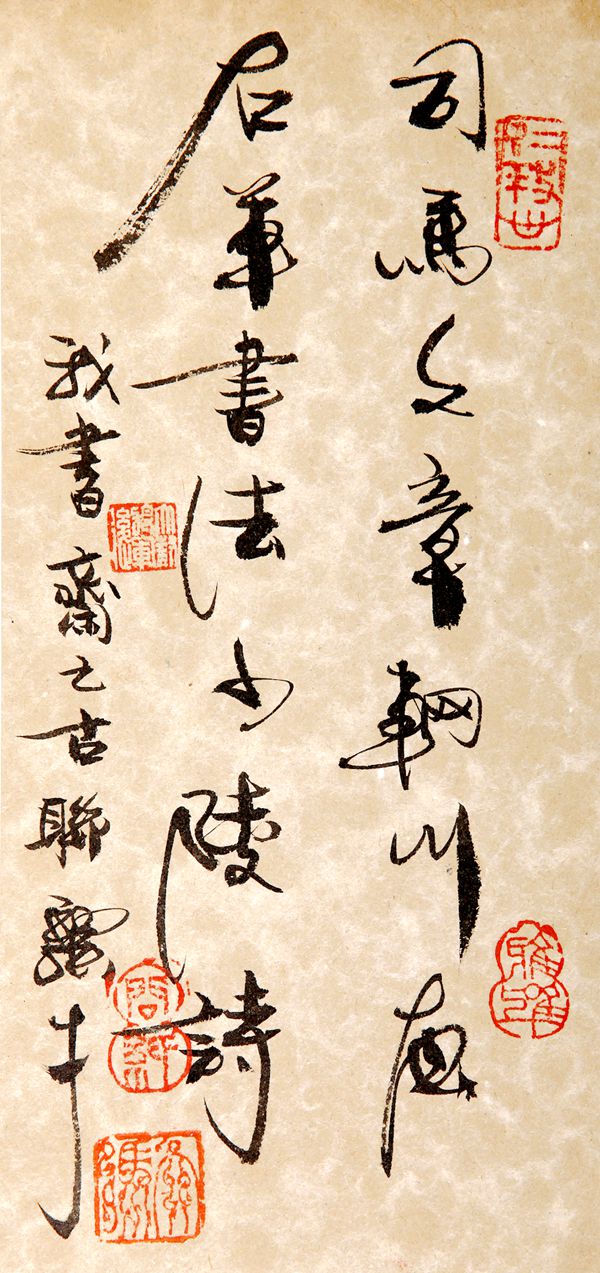 司馬文章輞川画
右軍書法少陵詩
我書齋之古聯 驥才